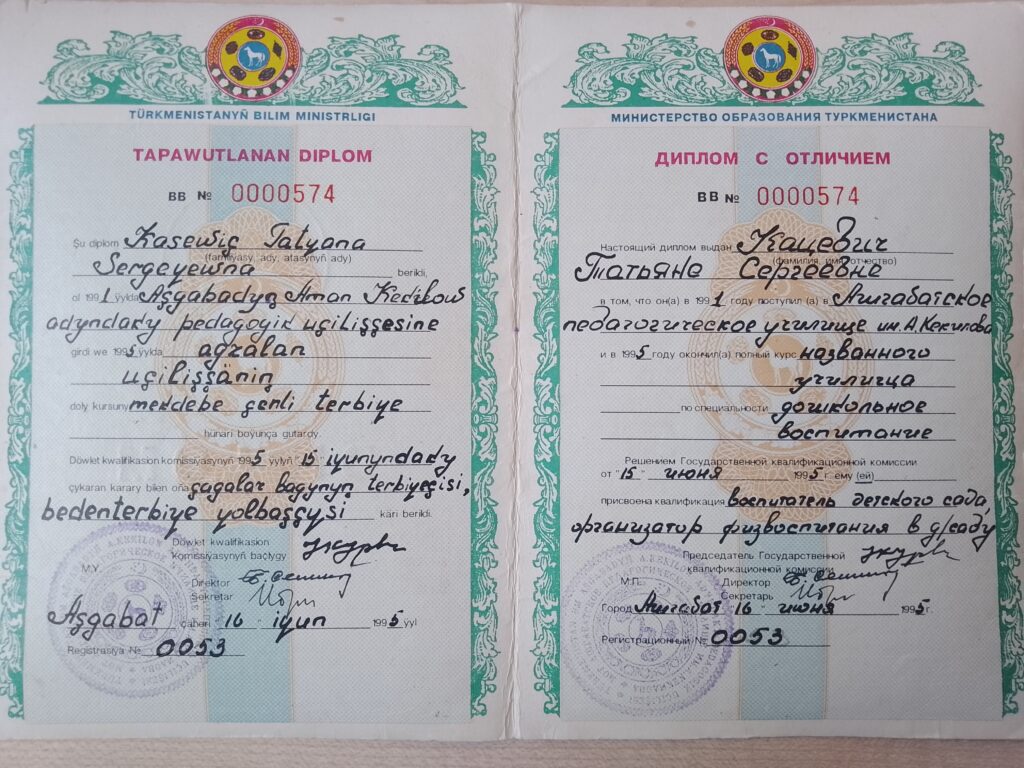 TÜRKMENISTANYŇ BILIM MINISTRLIGI
TAPAWUTLANAN DIPLOM
BB № 0000574
Şu diplom Kasewiç Tatyana
(familiýasy, ady, atasynyň ady)
Sergeyewna berildi,
ol 1991 ýylda Aşgabadyň Aman Kekilow
adyndaky pedagogik uçilişşesine
girdi we 1995 ýylda agzalan
uçilişşäniň
doly kursuny mekdebe çenli terbiye
hünäri boýunça gutardy.
Döwlet kwalifikasion komissiýasynyň 1995 ýylyň "15" iyunyndaky
çykaran karary bilen oňa çagalar bagynyň terbiyeçisi,
bedenterbiye yolbaşçysi käri berildi.
Döwlet kwalifikasion
komissiýasynyň başlygy
M.Ý.
Direktor
Sekretar
Aşgabat şäheri 16 iyun 1995 ýyl
Registrasiýa № 0053
МИНИСТЕРСТВО ОБРАЗОВАНИЯ ТУРКМЕНИСТАНА
ДИПЛОМ С ОТЛИЧИЕМ
ВВ № 0000574
Настоящий диплом выдан Кацевич
(фамилия, имя, отчество)
Татьяне Сергеевне
в том, что он(а) в 1991 году поступил (а) в Ашгабатское
педагогическое училище им. А. Кекилова
и в 1995 году окончил(а) полный курс названного
училища
по специальности дошкольное
воспитание
Решением Государственной квалификационной комиссии
от "15" июня 1995 г. ему (ей)
присвоена квалификация воспитатель детского сада,
организатор физвоспитания в д/саду
Председатель Государственной
квалификационной комиссии
М.П.
Директор
Секретарь
Город Ашгабат 16 июня 1995 г.
Регистрационный № 0053